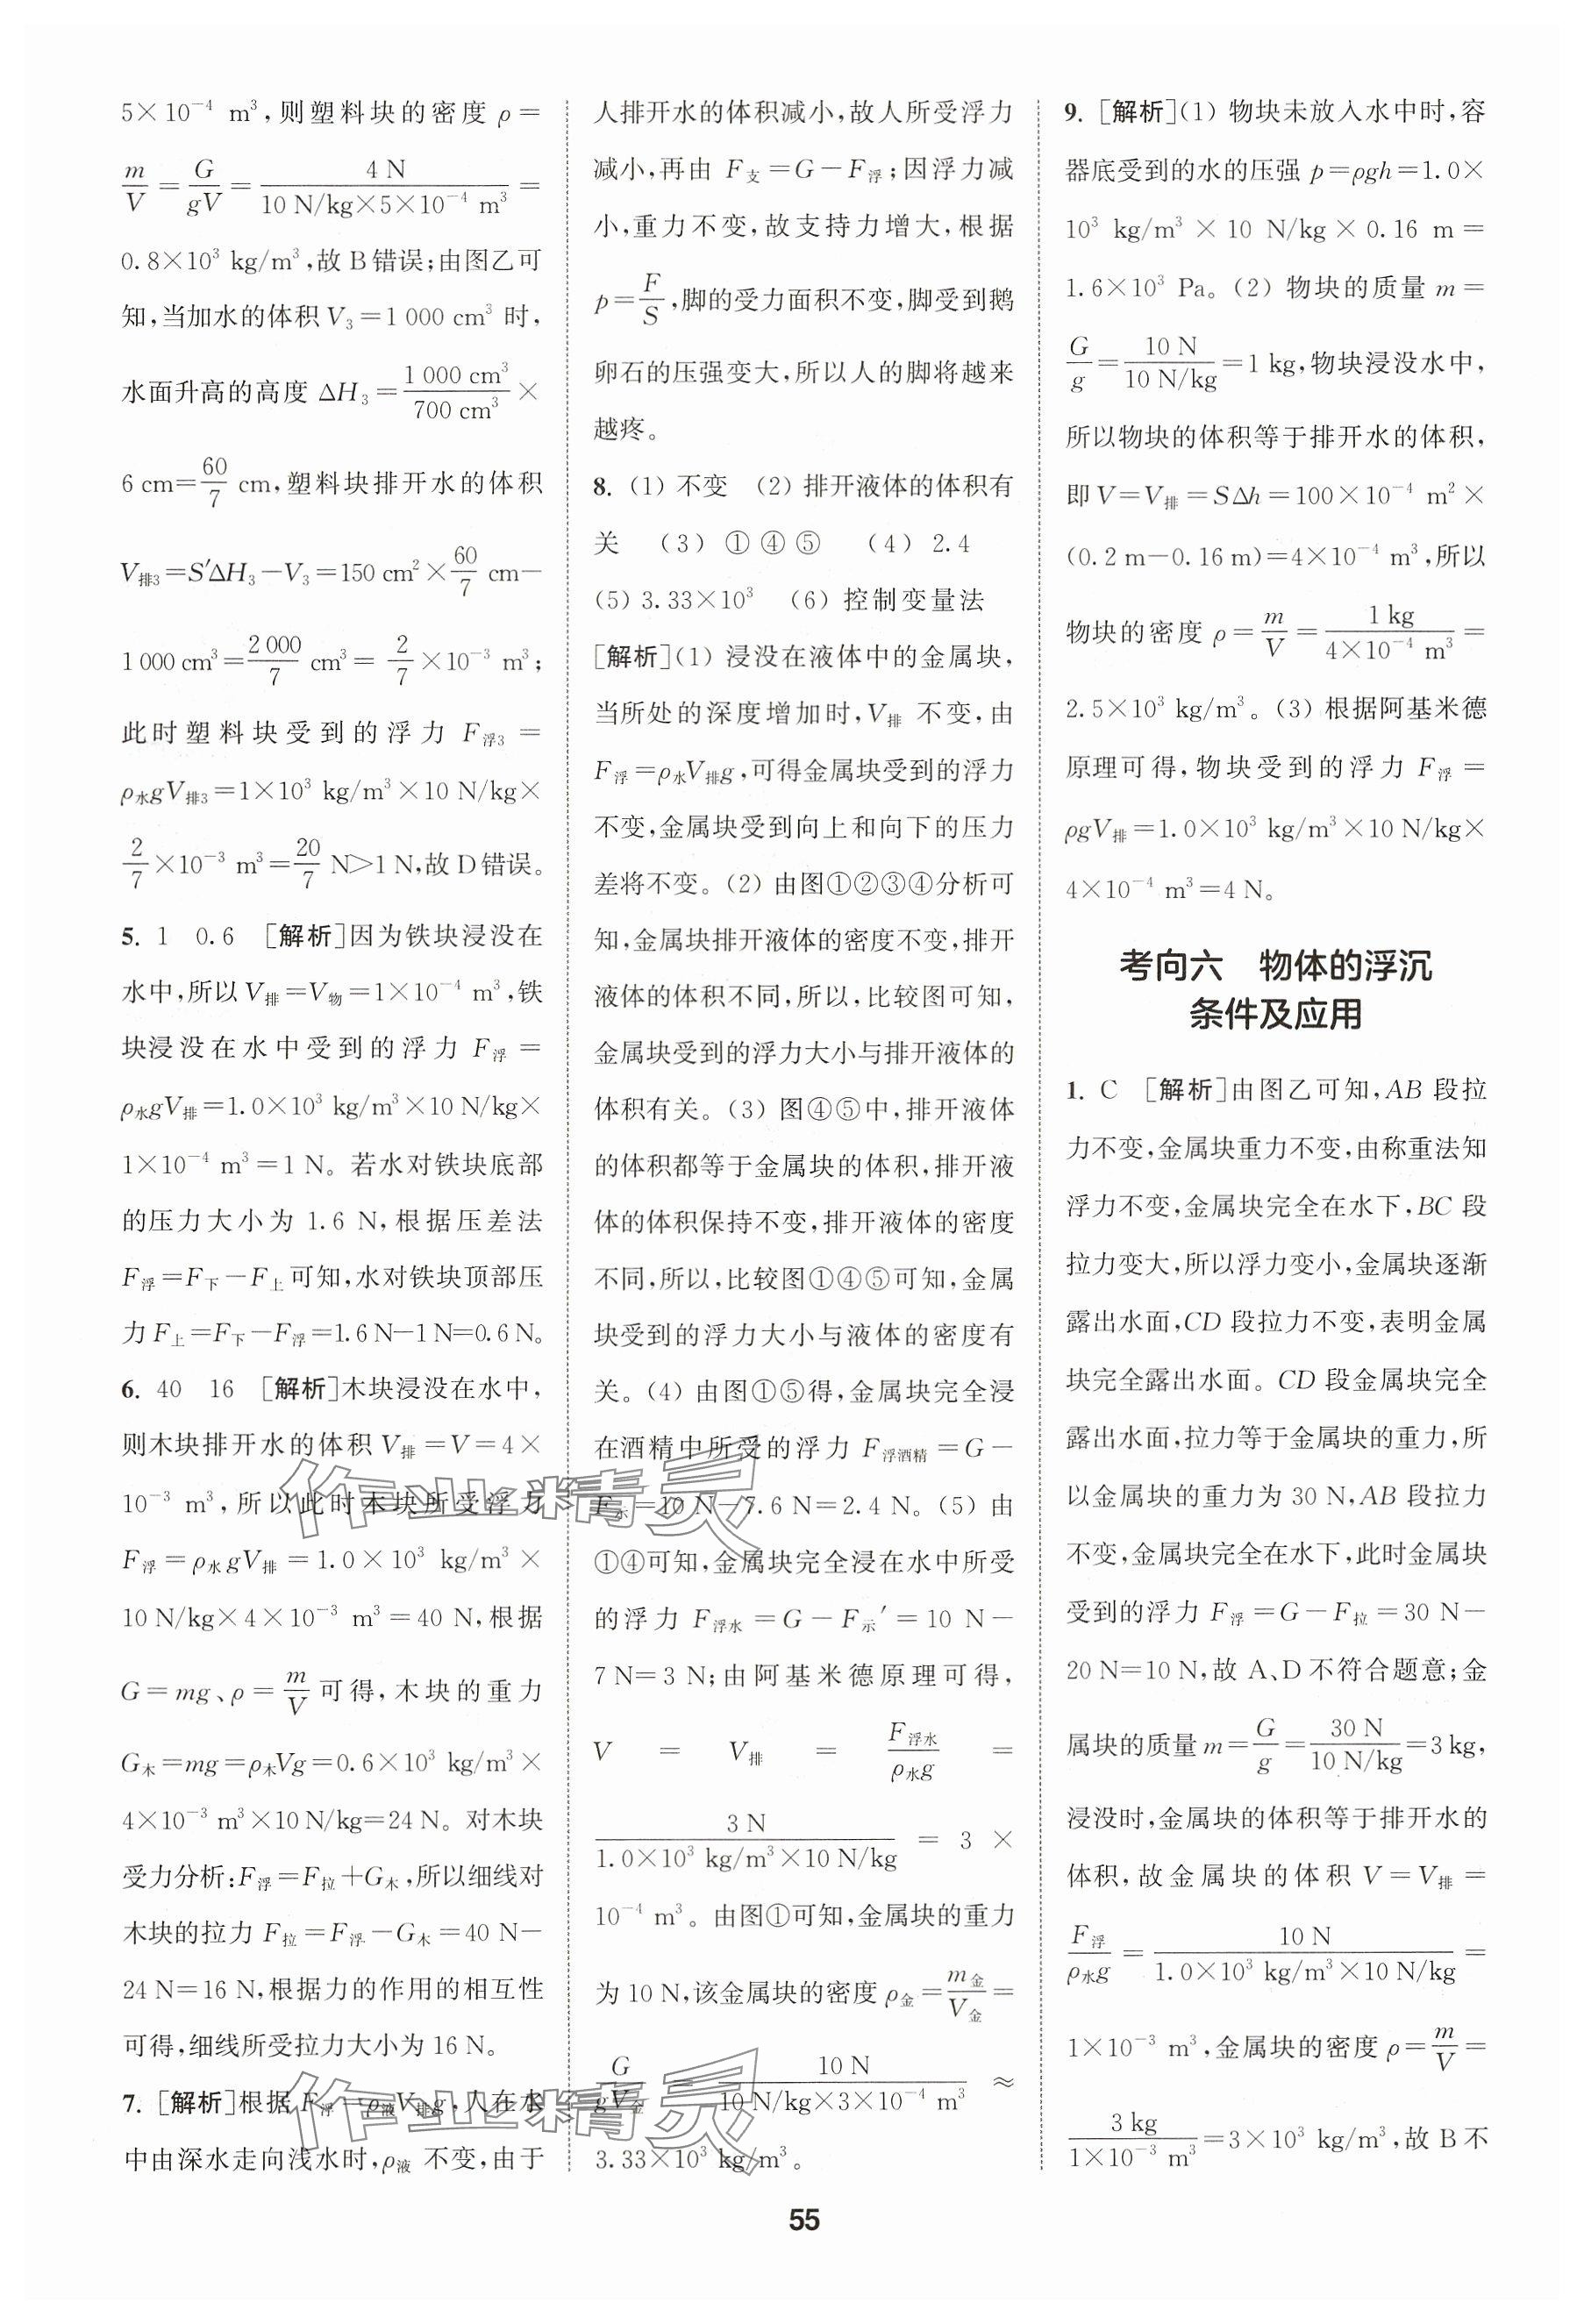 5×10⁻⁴ m³,则塑料块的密度 ρ=
m/V=G/gV=4 N/(10 N/kg×5×10⁻⁴ m³)=
0.8×10³ kg/m³,故B错误;由图乙可
知,当加水的体积V₃=1 000 cm³ 时,
水面升高的高度 ΔH₃=1 000 cm³/700 cm³×
6 cm=60/7 cm,塑料块排开水的体积
V排₃=S′ΔH₃-V₃=150 cm²×60/7 cm-
1 000 cm³=2 000/7 cm³=2/7×10⁻³ m³;
此时塑料块受到的浮力 F浮₃=
ρ水gV排₃=1×10³ kg/m³×10 N/kg×
2/7×10⁻³ m³=20/7 N>1 N,故D错误。
5. 1 0.6 [解析]因为铁块浸没在
水中,所以V排=V物=1×10⁻⁴ m³,铁
块浸没在水中受到的浮力 F浮=
ρ水gV排=1.0×10³ kg/m³×10 N/kg×
1×10⁻⁴ m³=1 N。若水对铁块底部
的压力大小为 1.6 N,根据压差法
F浮=F下-F上可知,水对铁块顶部压
力F上=F下-F浮=1.6 N-1 N=0.6 N。
6. 40 16 [解析]木块浸没在水中,
则木块排开水的体积 V排=V=4×
10⁻³ m³,所以此时木块所受浮力
F浮=ρ水gV排=1.0×10³ kg/m³×
10 N/kg×4×10⁻³ m³=40 N,根据
G=mg、ρ=m/V可得,木块的重力
G木=mg=ρ木Vg=0.6×10³ kg/m³×
4×10⁻³ m³×10 N/kg=24 N。对木块
受力分析:F浮=F拉+G木,所以细线对
木块的拉力 F拉=F浮-G木=40 N-
24 N=16 N,根据力的作用的相互性
可得,细线所受拉力大小为16 N。
7. [解析]根据 F浮=ρ液V排g,人在水
中由深水走向浅水时,ρ液 不变,由于
人排开水的体积减小,故人所受浮力
减小,再由 F支=G-F浮;因浮力减
小,重力不变,故支持力增大,根据
p=F/S,脚的受力面积不变,脚受到鹅
卵石的压强变大,所以人的脚将越来
越疼。
8. (1) 不变 (2) 排开液体的体积有
关 (3) ①④⑤ (4) 2.4
(5) 3.33×10³ (6) 控制变量法
[解析](1) 浸没在液体中的金属块,
当所处的深度增加时,V排 不变,由
F浮=ρ水V排g,可得金属块受到的浮力
不变,金属块受到向上和向下的压力
差将不变。(2) 由图①②③④分析可
知,金属块排开液体的密度不变,排开
液体的体积不同,所以,比较图可知,
金属块受到的浮力大小与排开液体的
体积有关。(3) 图④⑤中,排开液体
的体积都等于金属块的体积,排开液
体的体积保持不变,排开液体的密度
不同,所以,比较图①④⑤可知,金属
块受到的浮力大小与液体的密度有
关。(4) 由图①⑤得,金属块完全浸
在酒精中所受的浮力 F浮酒精=G-
F示=10 N-7.6 N=2.4 N。(5) 由
①④可知,金属块完全浸在水中所受
的浮力 F浮水=G-F示′=10 N-
7 N=3 N;由阿基米德原理可得,
V=V排=F浮水/ρ水g=
3 N/(1.0×10³ kg/m³×10 N/kg)=3×
10⁻⁴ m³。由图①可知,金属块的重力
为10 N,该金属块的密度ρ金=m金/V金=
G/gV金=10 N/(10 N/kg×3×10⁻⁴ m³)≈
3.33×10³ kg/m³。
9. [解析](1) 物块未放入水中时,容
器底受到的水的压强 p=ρgh=1.0×
10³ kg/m³×10 N/kg×0.16 m=
1.6×10³ Pa。(2) 物块的质量 m=
G/g=10 N/(10 N/kg)=1 kg,物块浸没水中,
所以物块的体积等于排开水的体积,
即V=V排=SΔh=100×10⁻⁴ m²×
(0.2 m-0.16 m)=4×10⁻⁴ m³,所以
物块的密度 ρ=m/V=1 kg/(4×10⁻⁴ m³)=
2.5×10³ kg/m³。(3) 根据阿基米德
原理可得,物块受到的浮力 F浮=
ρgV排=1.0×10³ kg/m³×10 N/kg×
4×10⁻⁴ m³=4 N。
考向六 物体的浮沉
条件及应用
1. C [解析]由图乙可知,AB段拉
力不变,金属块重力不变,由称重法知
浮力不变,金属块完全在水下,BC段
拉力变大,所以浮力变小,金属块逐渐
露出水面,CD段拉力不变,表明金属
块完全露出水面。CD段金属块完全
露出水面,拉力等于金属块的重力,所
以金属块的重力为30 N,AB段拉力
不变,金属块完全在水下,此时金属块
受到的浮力 F浮=G-F拉=30 N-
20 N=10 N,故 A、D不符合题意;金
属块的质量m=G/g=30 N/(10 N/kg)=3 kg,
浸没时,金属块的体积等于排开水的
体积,故金属块的体积 V=V排=
F浮/ρ水g=10 N/(1.0×10³ kg/m³×10 N/kg)=
1×10⁻³ m³,金属块的密度ρ=m/V=
3 kg/(1×10⁻³ m³)=3×10³ kg/m³,故 B 不
作业精灵
作业精灵
55